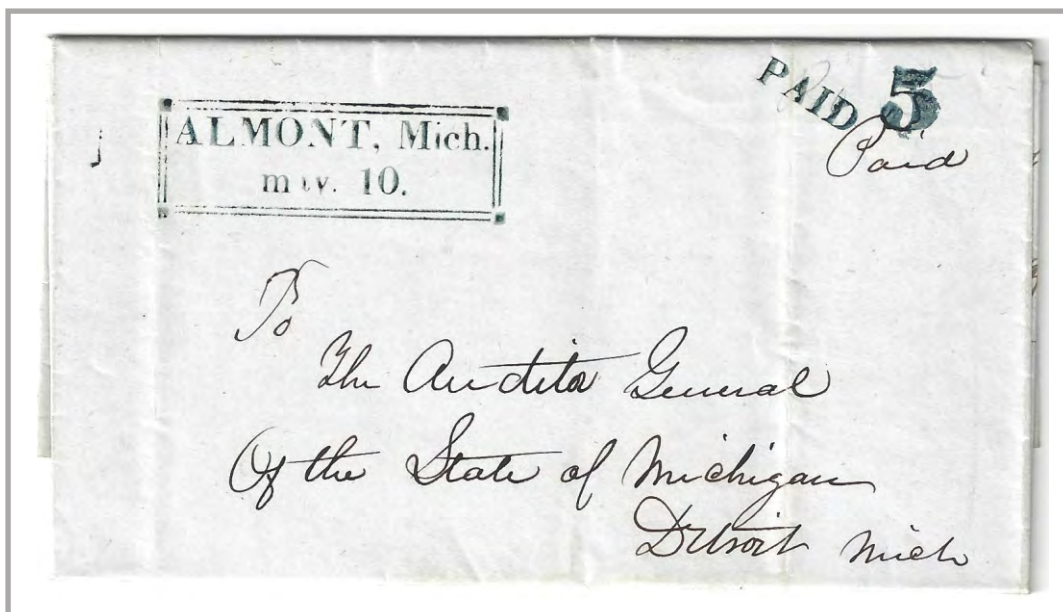 ALMONT, Mich.
10.
PAID 5
Paid
To
The Auditor General
Of the State of Michigan
Detroit Mich